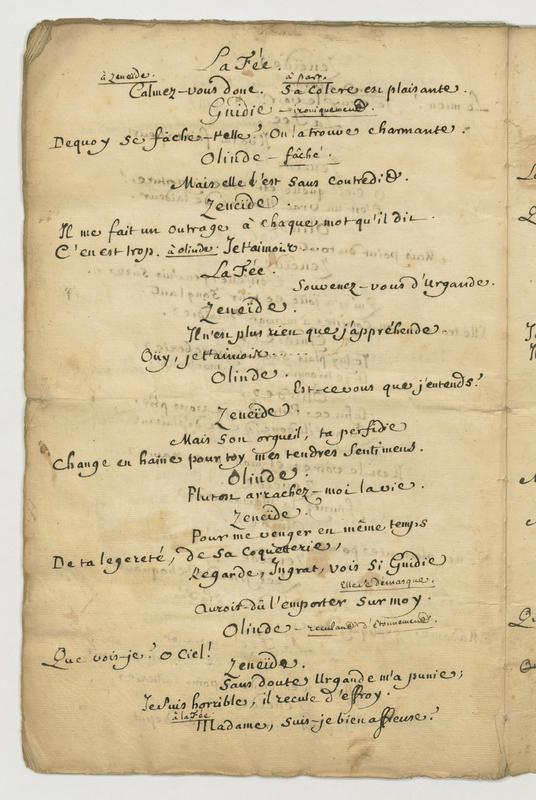 La Fée.
à Zeneïde. à part.
Calmez-vous donc. Sa Colere est plaisante.
Gnidie - ironiquement.
Dequoy se fâche-t'elle? On la trouve charmante.
Olinde - fâché.
Mais elle l'est sans contredit.
Zeneïde.
Il me fait un outrage à chaque mot qu'il dit.
C'en est trop. à olinde. Je t'aimois...
La Fée.
Souvenez-vous d'Urgande.
Zeneïde.
Il n'est plus rien que j'appréhende.
Ouy, je t'aimois.....
Olinde.
Est-ce vous que j'entends?
Zeneïde.
Mais son orgueil, ta perfidie
Change en haine pour toy mes tendres sentimens.
Olinde.
Plutost arrachez-moi la vie.
Zeneïde.
Pour me venger en même temps
De ta legereté, de sa Coquetterie,
Regarde, Ingrat, vois si Gnidie
Elle se démasque.
Auroit dû l'emporter sur moy.
Olinde - reculant d'étonnement.
Que vois-je? O Ciel!
Zeneïde.
Sans doute Urgande m'a punie;
Je suis horrible, il recule d'effroy.
à la Fée
Madame, suis-je bien affreuse?